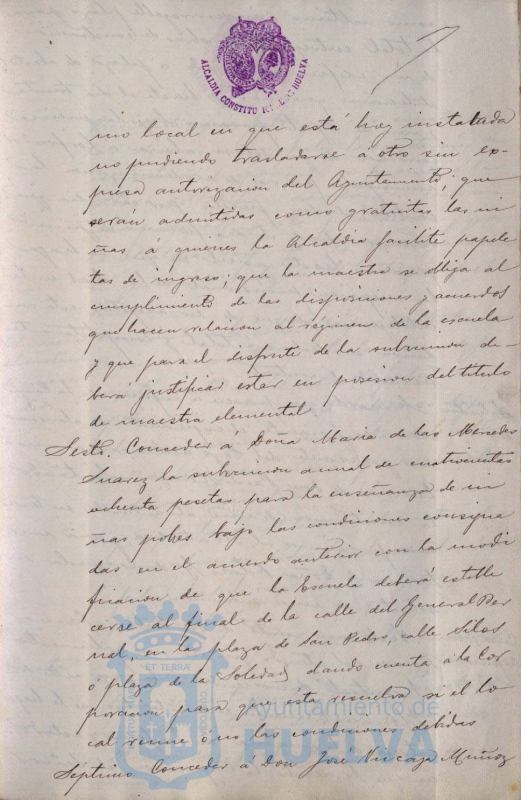 7
ALCALDIA CONSTITU DE HUELVA
mo local en que está hoy instalada
no pudiendo trasladarse á otro sin ex-
presa autorizacion del Ayuntamiento; que
serán admitidas como gratuitas las ni
ñas á quienes la Alcaldia facilite papele
tas de ingreso; que la maestra se obliga al
cumplimiento de las disposiciones y acuerdos
que hacen relacion al régimen de la escuela
y que para el disfrute de la subvencion de-
berá justificar estar en posesion del titulo
de maestra elemental
Sesto. Conceder á Doña Maria de las Mercedes
Suarez la subvencion anual de cuatrocientas
ochenta pesetas para la enseñanza de ni
ñas pobres bajo las condiciones consigna
das en el acuerdo anterior con la modi
ficacion de que la Escuela deberá estable
cerse al final de la calle del General Ber
nal, en la plaza de San Pedro, calle Silos
ó plaza de la Soledad dando cuenta á la Cor
poracion para que ésta resuelva si el lo
cal reune ó no las condiciones debidas
Septimo Conceder á Don José Muñoz
ET TERRÆ
Ayuntamiento de
HUELVA